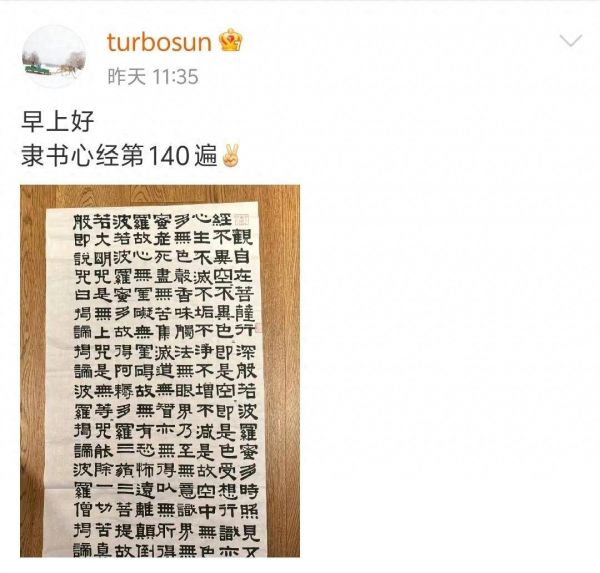 turbosun
昨天 11:35
早上好
隶书心经第140遍✌
般若波羅蜜多心經
觀自在菩薩行深般若波羅蜜多時照見五
不異空不異色即是空即是色受想行識亦
生不滅不垢不淨不增不減是故空中無色
無色聲香味觸法無眼界乃至無意識界無
老死盡無苦集滅道無智亦無得以無所得
故心無罣礙無罣礙故無有恐怖遠離顛倒
若波羅蜜多故得阿耨多羅三藐三菩提故
大明咒是無上咒是無等咒能除一切苦真
即說咒曰揭諦揭諦波羅揭諦波羅僧揭諦